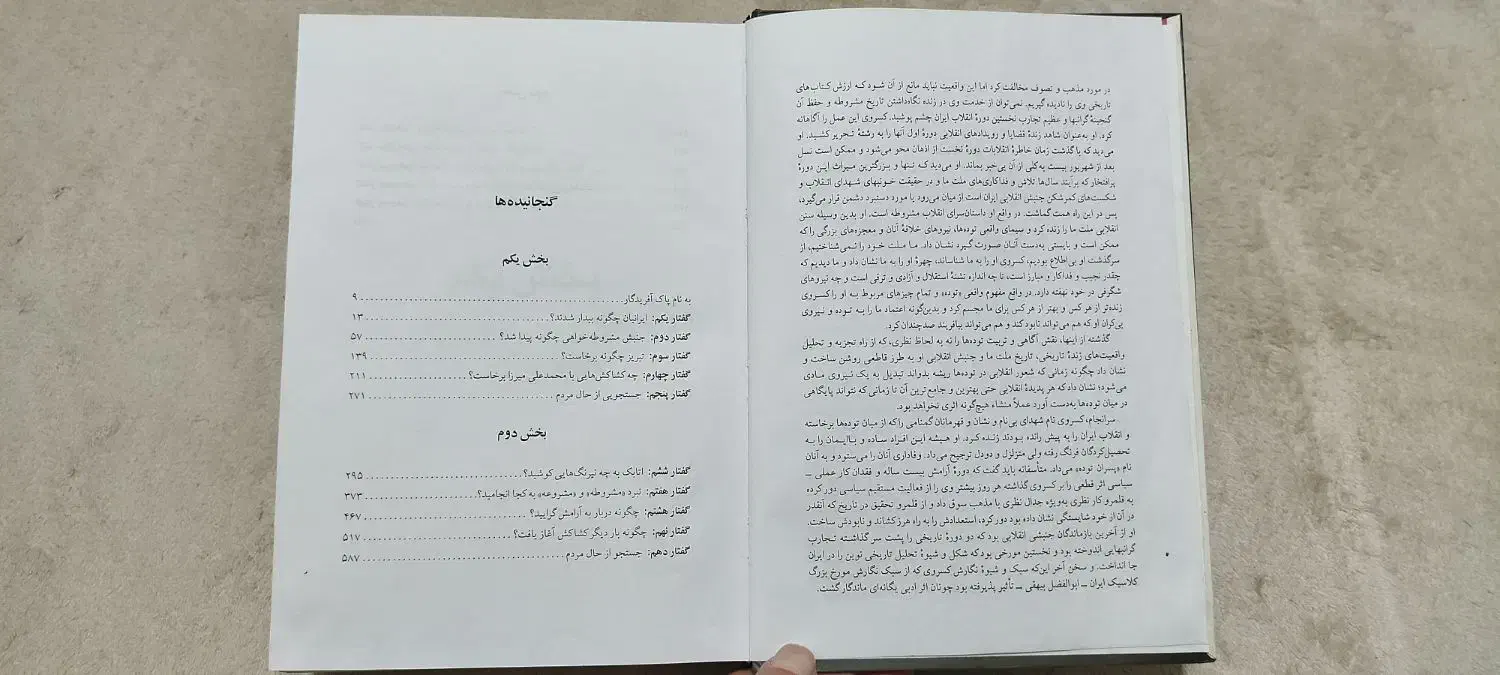 در مورد مذهب و تصوف مخالفت کرد اما این واقعیت نباید مانع از آن شود که ارزش کتاب‌های
تاریخی وی را نادیده گیریم. نمی‌توان از خدمت وی در زنده نگاه‌داشتن تاریخ مشروطه و حفظ آن
گنجینهٔ گرانبها و عظیم تجارب نخستین دورهٔ انقلاب ایران چشم پوشید. کسروی این عمل را آگاهانه
کرد. او به‌عنوان شاهد زندهٔ قضایا و رویدادهای انقلابی دورهٔ اول آنها را به رشتهٔ تحریر کشید. او
می‌دید که با گذشت زمان خاطرهٔ انقلابات دورهٔ نخست از اذهان محو می‌شود و ممکن است نسل
بعد از شهریور بیست به‌کلی از آن بی‌خبر بماند. او می‌دید که تنها و بزرگترین میراث این دورهٔ
پرافتخار که برآیند سال‌ها تلاش و فداکاری‌های ملت ما و در حقیقت خونبهای شهدای انقلاب و
شکست‌های کمرشکن جنبش انقلابی ایران است از میان می‌رود یا مورد دستبرد دشمن قرار می‌گیرد،
پس در این راه همت گماشت. در واقع او داستان‌سرای انقلاب مشروطه است. او بدین وسیله سنن
انقلابی ملت ما را زنده کرد و سیمای واقعی توده‌ها، نیروهای خلاقهٔ آنان و معجزه‌های بزرگی را که
ممکن است و بایستی به‌دست آنان صورت گیرد نشان داد. ما ملت خود را نمی‌شناختیم، از
سرگذشت او بی‌اطلاع بودیم، کسروی او را به ما شناساند، چهرهٔ او را به ما نشان داد و ما دیدیم که
چقدر نجیب و فداکار و مبارز است، تا چه اندازه تشنهٔ استقلال و آزادی و ترقی است و چه نیروهای
شگرفی در خود نهفته دارد. در واقع مفهوم واقعی «توده» و تمام چیزهای مربوط به او را کسروی
زنده‌تر از هر کس و بهتر از هر کس برای ما مجسم کرد و بدین‌گونه اعتماد ما را به توده و نیروی
بی‌کران او که هم می‌تواند نابود کند و هم می‌تواند بیافریند صدچندان کرد.
گذشته از اینها، نقش آگاهی و تربیت توده‌ها را نه به لحاظ نظری، که از راه تجزیه و تحلیل
واقعیت‌های زندهٔ تاریخی، تاریخ ملت ما و جنبش انقلابی او به طرز قاطعی روشن ساخت و
نشان داد چگونه زمانی که شعور انقلابی در توده‌ها ریشه بدواند تبدیل به یک نیروی مادی
می‌شود؛ نشان داد که هر پدیدهٔ انقلابی حتی بهترین و جامع‌ترین آن تا زمانی که نتواند پایگاهی
در میان توده‌ها به‌دست آورد عملاً منشاء هیچ‌گونه اثری نخواهد بود.
سرانجام، کسروی نام شهدای بی‌نام و نشان و قهرمانان گمنامی را که از میان توده‌ها برخاسته
و انقلاب ایران را به پیش رانده بودند زنده کرد. او همیشه این افراد ساده و باایمان را به
تحصیل‌کردگان فرنگ رفته ولی متزلزل و دودل ترجیح می‌داد. وفاداری آنان را می‌ستود و به آنان
نام «پسران توده» می‌داد. متأسفانه باید گفت که دورهٔ آرامش بیست ساله و فقدان کار عملی ـ
سیاسی اثر قطعی را بر کسروی گذاشته هر روز بیشتر وی را از فعالیت مستقیم سیاسی دور کرده
به قلمرو کار نظری به‌ویژه جدال نظری با مذهب سوق داد و از قلمرو تحقیق در تاریخ که آنقدر
در آن از خود شایستگی نشان داده بود دور کرد، استعدادش را به راه هرز کشاند و نابودش ساخت.
او از آخرین بازماندگان جنبشی انقلابی بود که دو دورهٔ تاریخی را پشت سر گذاشته تجارب
گرانبهایی اندوخته بود و نخستین مورخی بود که شکل و شیوهٔ تحلیل تاریخی نوین را در ایران
جا انداخت. و سخن آخر این‌که سبک و شیوهٔ نگارش کسروی که از سبک نگارش مورخ بزرگ
کلاسیک ایران ـ ابوالفضل بیهقی ـ تأثیر پذیرفته بود چونان اثر ادبی یگانه‌ای ماندگار گشت.
گنجانیده‌ها
بخش یکم
به نام پاک آفریدگار ........ ۹
گفتار یکم: ایرانیان چگونه بیدار شدند؟ ........ ۱۳
گفتار دوم: جنبش مشروطه‌خواهی چگونه پیدا شد؟ ........ ۵۷
گفتار سوم: تبریز چگونه برخاست؟ ........ ۱۳۹
گفتار چهارم: چه کشاکش‌هایی با محمدعلی میرزا برخاست؟ ........ ۲۱۱
گفتار پنجم: جستجویی از حال مردم ........ ۲۷۱
بخش دوم
گفتار ششم: اتابک به چه نیرنگ‌هایی کوشید؟ ........ ۲۹۵
گفتار هفتم: نبرد «مشروطه» و «مشروعه» به کجا انجامید؟ ........ ۳۷۳
گفتار هشتم: چگونه دربار به آرامش گرایید؟ ........ ۴۶۷
گفتار نهم: چگونه بار دیگر کشاکش آغاز یافت؟ ........ ۵۱۷
گفتار دهم: جستجو از حال مردم ........ ۵۸۷